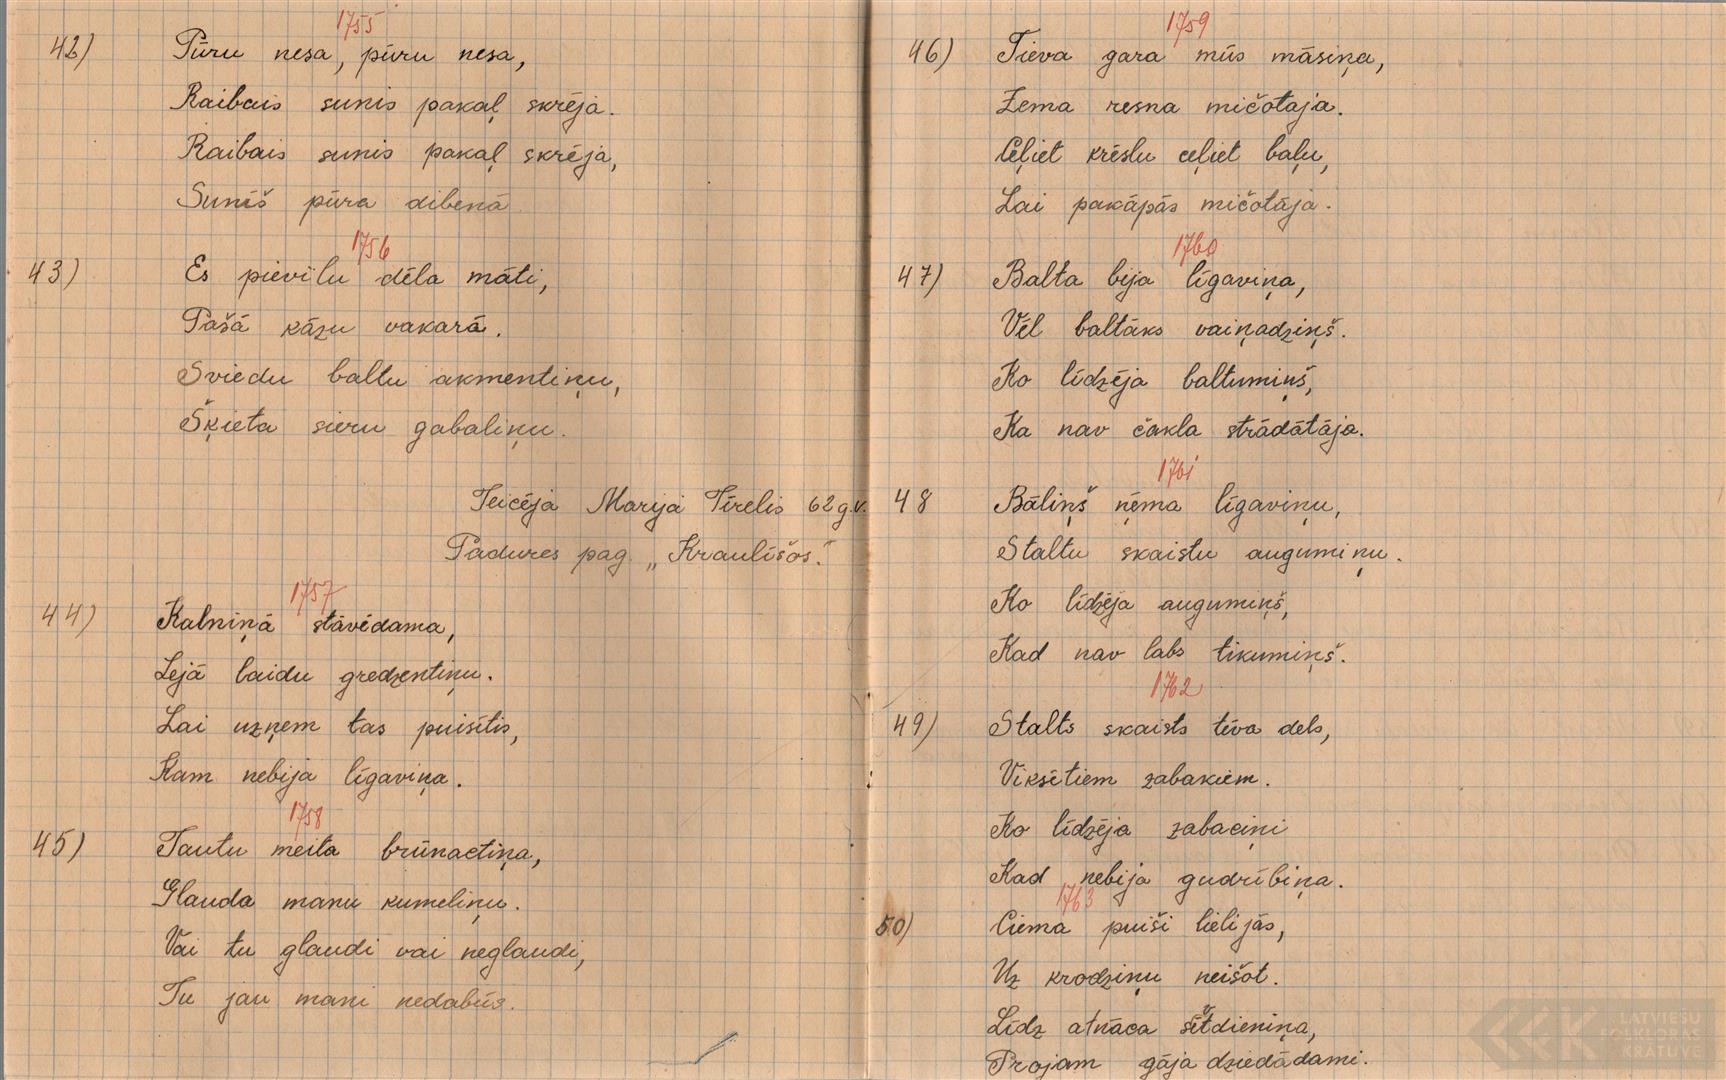 1755
42) Pūru nesa, pūru nesa,
Raibais sunis pakaļ skrēja.
Raibais sunis pakaļ skrēja,
Sunīš pūra dibenā
1756
43) Es pievīlu dēla māti,
Pašā kāzu vakarā.
Sviedu baltu akmentiņu,
Šķieta sieru gabaliņu.
Teicēja Marija Tīrelis 62 g.v.
Padures pag. „Kraulīšos."
1757
44) Kalniņā stāvēdama,
Lejā laidu gredzentiņu.
Lai uzņem tas puisītis,
Kam nebija līgaviņa.
1758
45) Tautu meita brūnactiņa,
Glauda manu kumeliņu.
Vai tu glaudi vai neglaudi,
Tu jau mani nedabūs.
1759
46) Tieva gara mūs māsiņa,
Zema resna mičotaja.
Ceļiet krēslu ceļiet baļu,
Lai pakāpās mičotāja.
1760
47) Balta bija līgaviņa,
Vēl baltāks vaiņadziņš.
Ko līdzēja baltumiņš,
Ka nav čakla strādātāja.
1761
48 Bāliņš ņēma līgaviņu,
Staltu skaistu augumiņu.
Ko līdzēja augumiņš,
Kad nav labs tikumiņš.
1762
49) Stalts skaists tēva dels,
Viksētiem zabakiem.
Ko līdzēja zabaciņi
Kad nebija gudrībiņa.
1763
50) Ciema puiši lielijās,
Uz krodziņu neišot.
Līdz atnāca sētdieniņa,
Projam gāja dziedādami.
LATVIEŠU
FOLKLORAS
KRĀTUVE